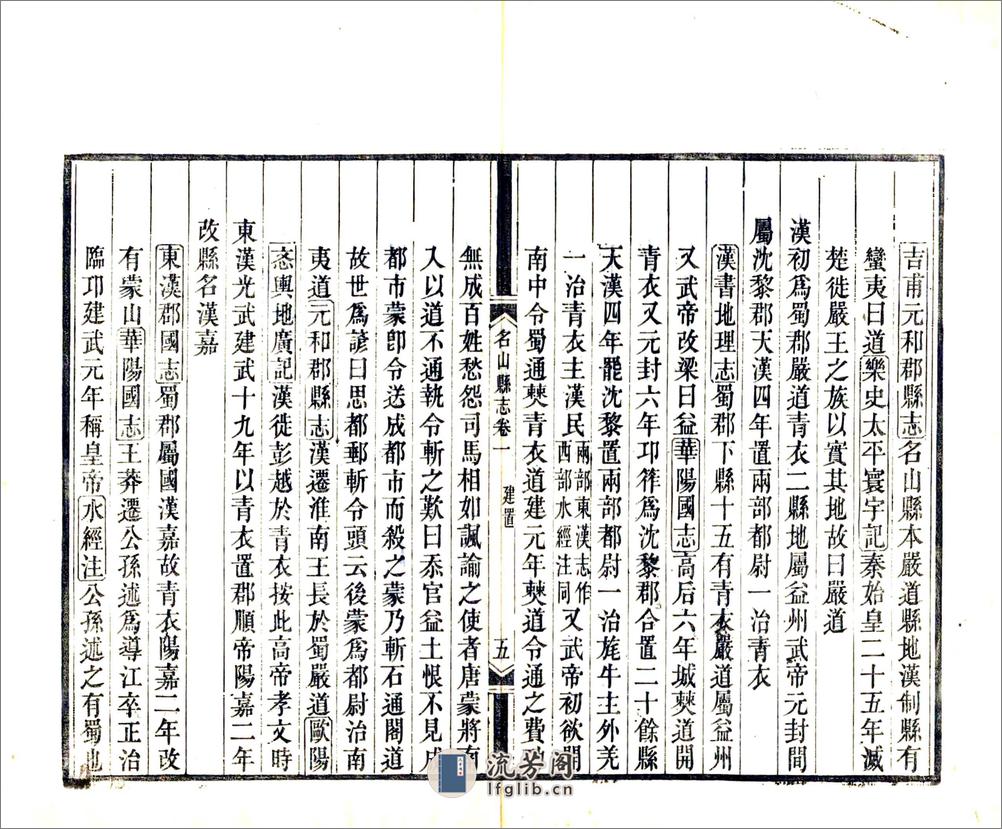 吉甫元和郡縣志名山縣本嚴道縣地漢制縣有
蠻夷曰道樂史太平寰宇記秦始皇二十五年滅
楚徙嚴王之族以實其地故曰嚴道
漢初爲蜀郡嚴道青衣二縣地屬益州武帝元封間
屬沈黎郡天漢四年置兩部都尉一治青衣
漢書地理志蜀郡下縣十五有青衣嚴道屬益州
又武帝改梁曰益華陽國志高后六年城僰道開
青衣又元封六年卭筰爲沈黎郡合置二十餘縣
天漢四年罷沈黎置兩部都尉一治旄牛主外羌
一治青衣主漢民兩部東漢志作西部水經注同又武帝初欲開
南中令蜀通僰青衣道建元年僰道令通之費
名山縣志卷一
建置
五
無成百姓愁怨司馬相如諷諭之使者唐蒙將南
入以道不通執令斬之歎曰忝官益土恨不見成
都市蒙卽令送成都市而殺之蒙乃斬石通閣道
故世爲諺曰思都郵斬令頭云後蒙爲都尉治南
夷道元和郡縣志漢遷淮南王長於蜀嚴道歐陽
忞輿地廣記漢徙彭越於青衣按此高帝孝文時
東漢光武建武十九年以青衣置郡順帝陽嘉二年
改縣名漢嘉
東漢郡國志蜀郡屬國漢嘉故青衣陽嘉二年改
有蒙山華陽國志王莽遷公孫述爲導江卒正治
臨卭建武元年稱皇帝水經注公孫述之有蜀也
流芳阁
lfglib.cn